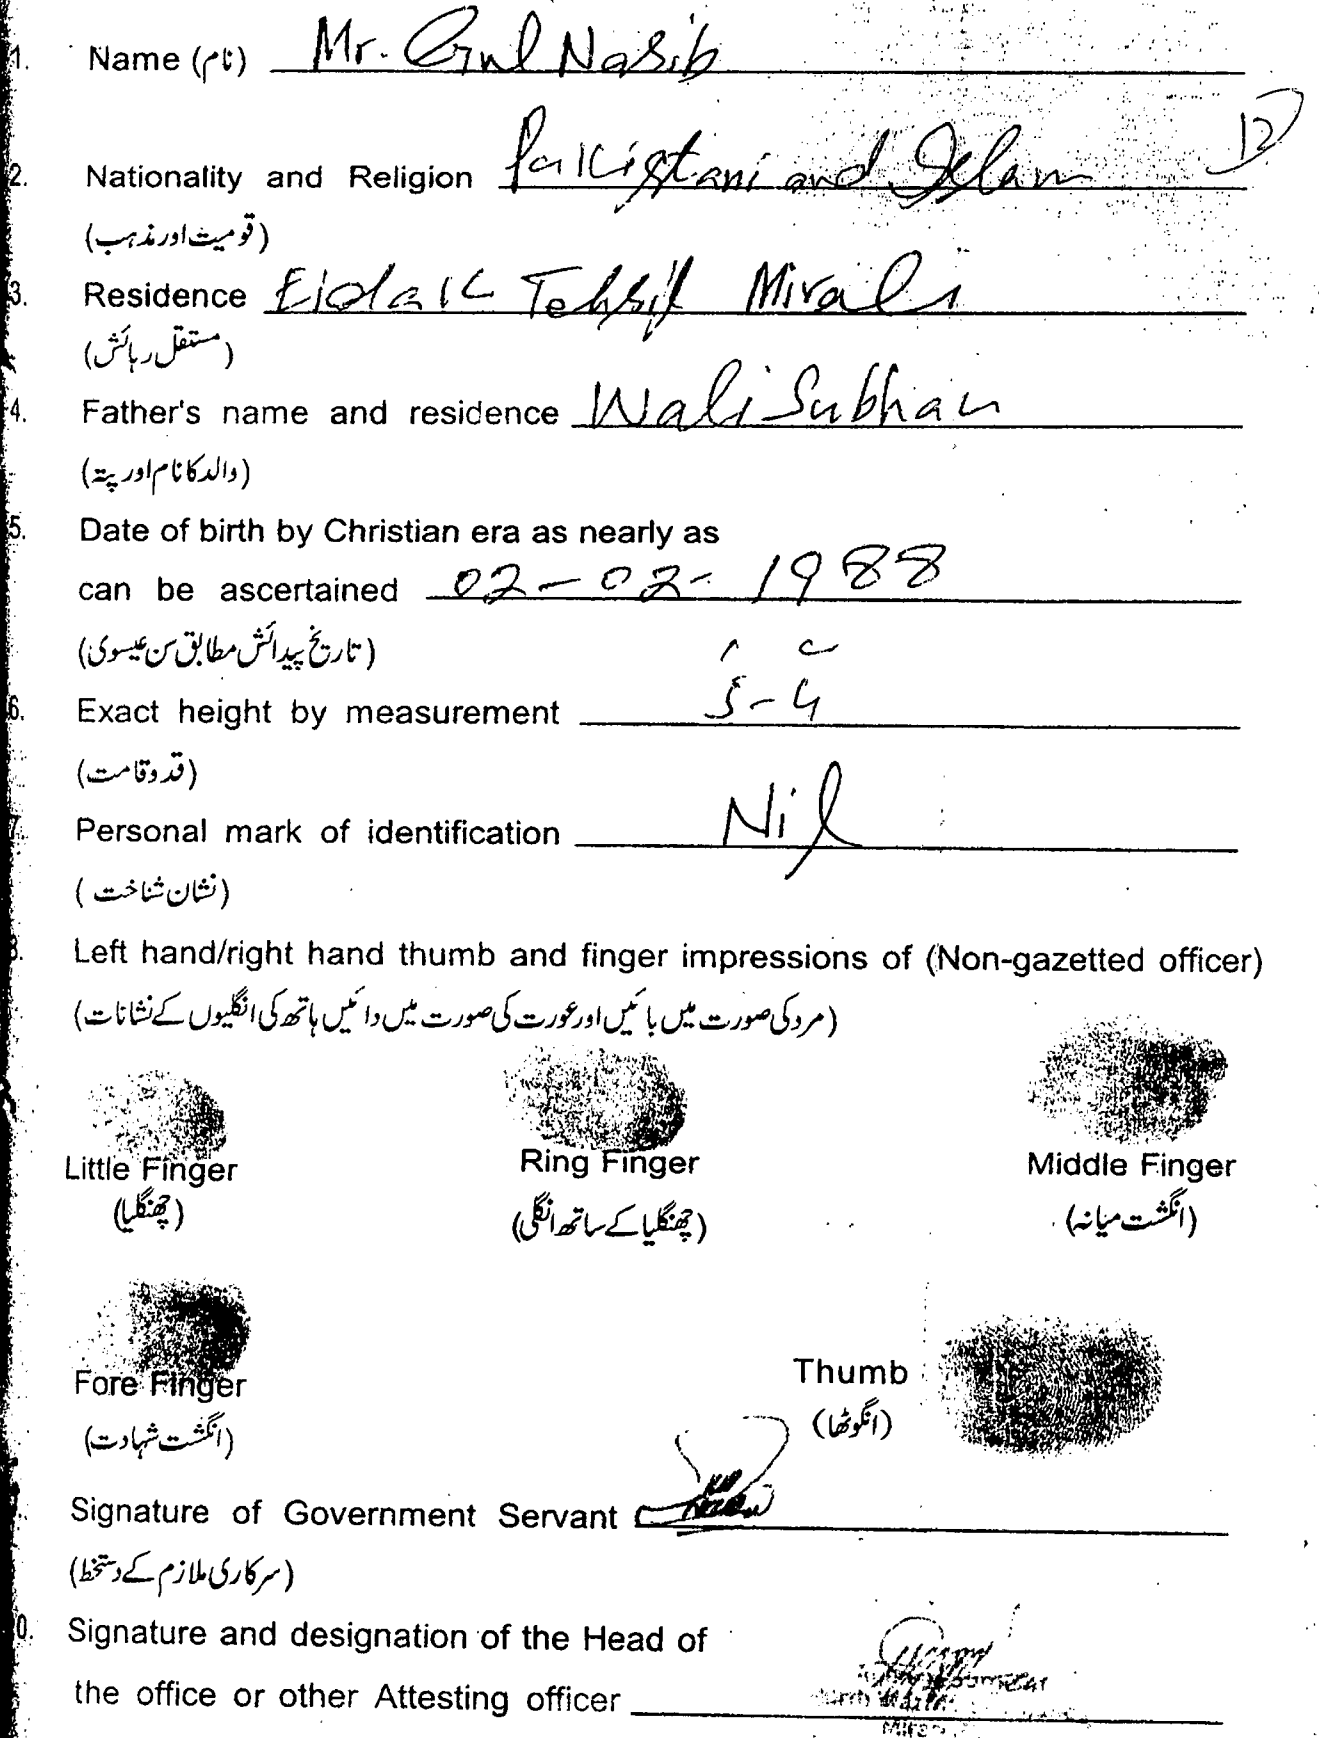 1. Name (نام) Mr. Gul Nasib
12
2. Nationality and Religion Pakistani and Islam
(قومیت اور مذہب)
3. Residence Eidak Tehsil Mirali
(مستقل رہائش)
4. Father's name and residence Wali Subhan
(والد کا نام اور پتہ)
5. Date of birth by Christian era as nearly as
can be ascertained 02-02-1988
(تاریخ پیدائش مطابق سن عیسوی)
6. Exact height by measurement 5-4
(قد و قامت)
7. Personal mark of identification Nil
(نشان شناخت)
8. Left hand/right hand thumb and finger impressions of (Non-gazetted officer)
(مرد کی صورت میں بائیں اور عورت کی صورت میں دائیں ہاتھ کی انگلیوں کے نشانات)
Little Finger Ring Finger Middle Finger
(چھنگلیا) (چھنگلیا کے ساتھ انگلی) (انگشت میانہ)
Fore Finger Thumb
(انگشت شہادت) (انگوٹھا)
Signature of Government Servant
(سرکاری ملازم کے دستخط)
0. Signature and designation of the Head of
the office or other Attesting officer